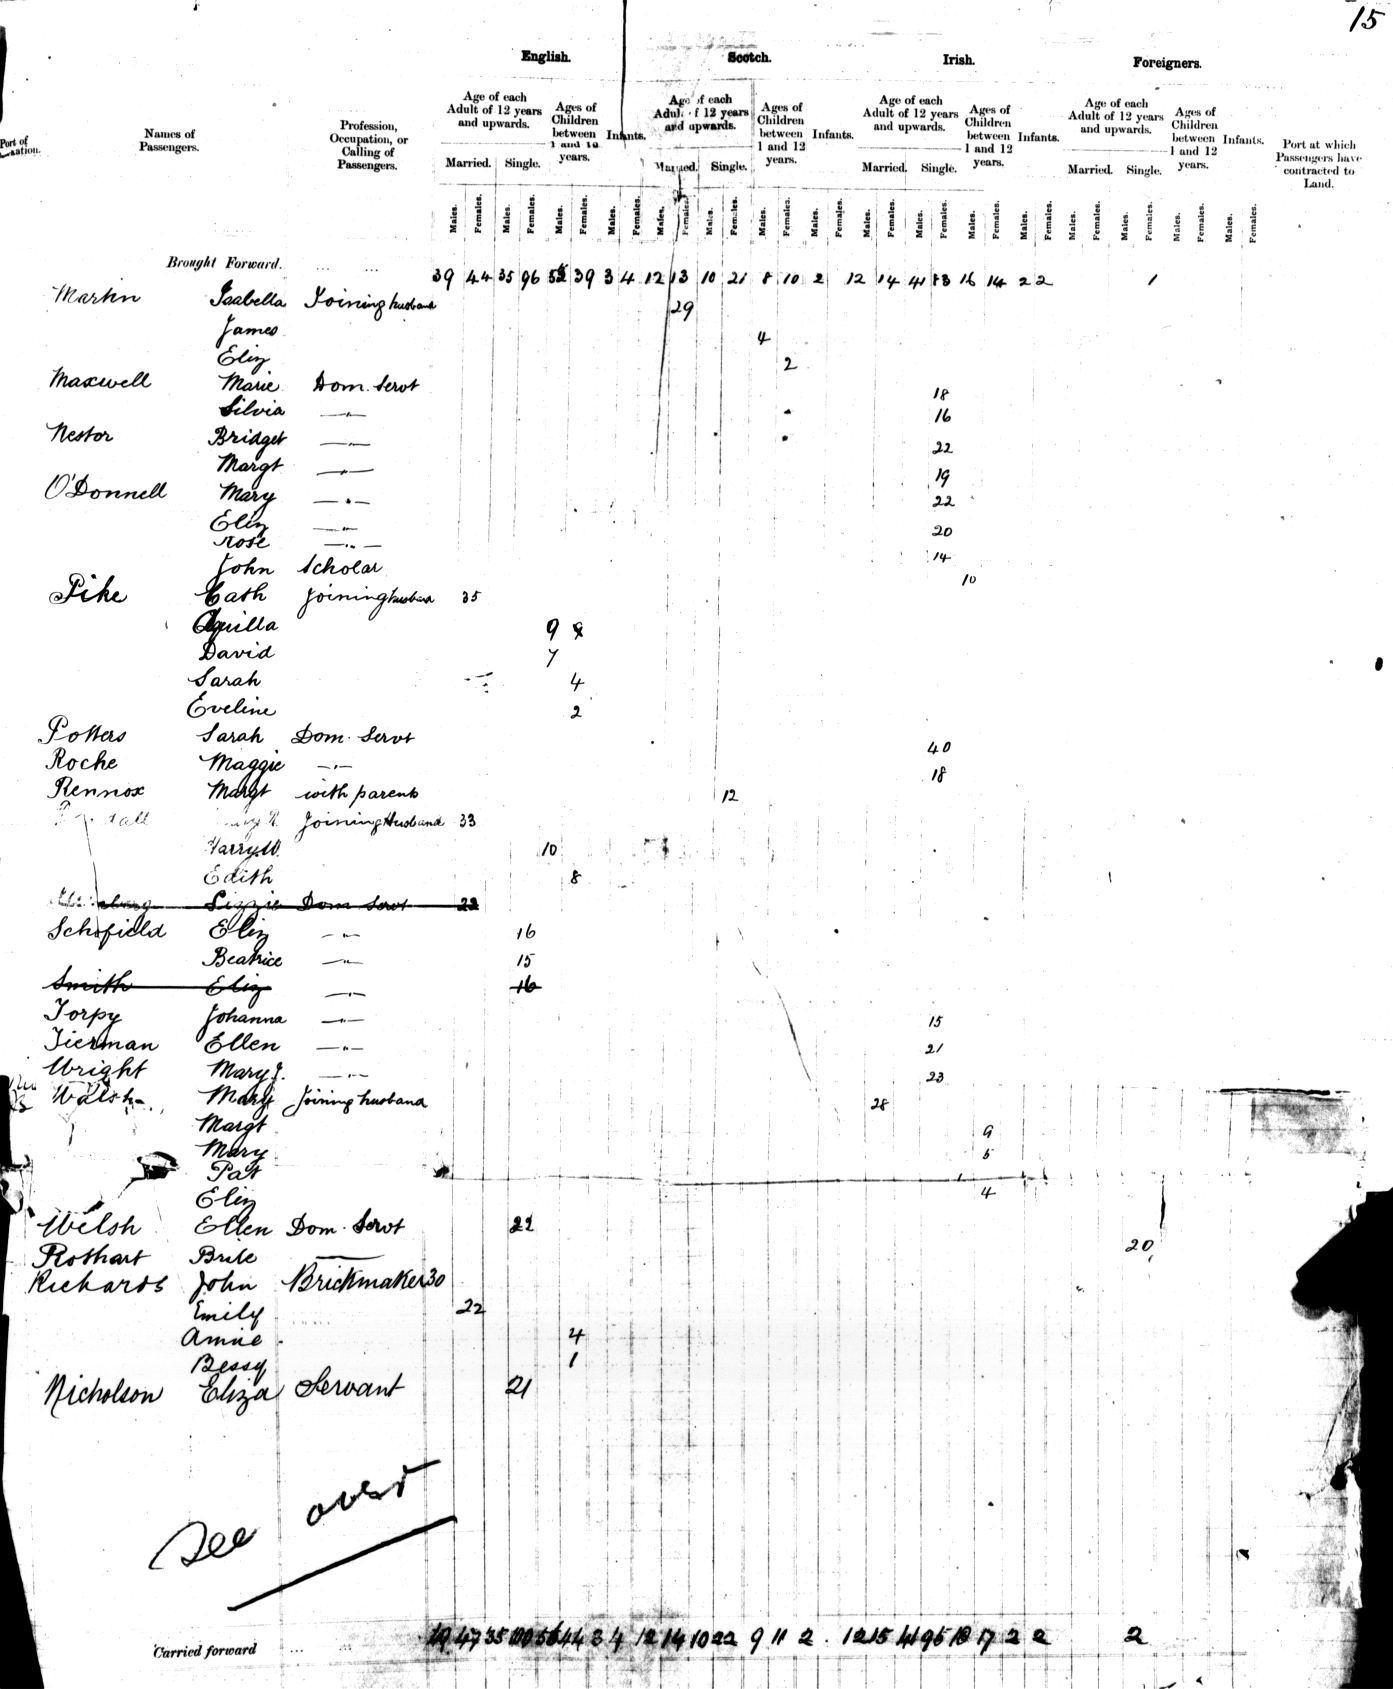 15
English. Scotch. Irish. Foreigners.
Port of
Names of Passengers. Profession, Occupation, or Calling of Passengers. Age of each Adult of 12 years and upwards. Ages of Children between 1 and 12 years. Infants. Age of each Adult of 12 years and upwards. Ages of Children between 1 and 12 years. Infants. Age of each Adult of 12 years and upwards. Ages of Children between 1 and 12 years. Infants. Age of each Adult of 12 years and upwards. Ages of Children between 1 and 12 years. Infants. Port at which Passengers have contracted to Land.
Married. Single. Married. Single. Married. Single. Married. Single.
Males. Females. Males. Females. Males. Females. Males. Females. Males. Females. Males. Females. Males. Females. Males. Females. Males. Females. Males. Females. Males. Females. Males. Females. Males. Females. Males. Females. Males. Females. Males. Females.
Brought Forward. 39 44 35 96 39 3 4 12 13 10 21 8 10 2 12 14 41 83 16 14 2 2 1
Martin Isabella Joining husband 29
James 4
Eliz 2
Maxwell Marie Dom. Servt 18
Silvia —"— 16
Nestor Bridget —"— 22
Margt —"— 19
O'Donnell Mary —"— 22
Eliz —"— 20
Rose —"— 14
John Scholar 10
Pike Cath Joining husband 35
Aquilla 9
David 7
Sarah 4
Eveline 2
Potters Sarah Dom. Servt 40
Roche Maggie —"— 18
Rennox Margt with parents 12
Joining Husband 33
Harry W. 10
Edith 8
Lizzie Dom Servt 22
Schofield Eliz —"— 16
Beatrice —"— 15
Smith Eliz —"— 16
Torpy Johanna —"— 15
Tierman Ellen —"— 21
Wright Mary J. —"— 23
Walsh Mary Joining husband 28
Margt 9
Mary 5
Pat
Eliz 4
Welsh Ellen Dom. Servt 22
Rothart Brite — 20
Richards John Brickmaker 30
Emily 22
Annie 4
Bessy 1
Nicholson Eliza Servant 21
See over
Carried forward 47 35 100 44 3 4 12 14 10 22 9 11 2 12 15 41 95 18 17 2 2 2